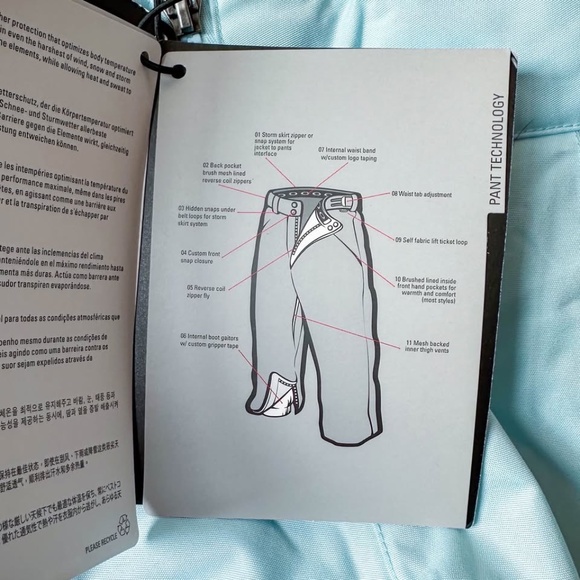 her protection that optimizes body temperature
in even the harshest of wind, snow and storm
he elements, while allowing heat and sweat to
etterschutz, der die Körpertemperatur optimiert
Schnee- und Sturmwetter allerbeste
Barriere gegen die Elemente wirkt, gleichzeitig
stung entweichen können.
e les intempéries optimisant la température du
performance maximale, même dans les pires
rtes, en agissant comme une barrière aux
r et la transpiration de s'échapper par
tege ante las inclemencias del clima
manteniéndolo en el máximo rendimiento hasta
menta más duras. Actúa como barrera ante
sudor transpiren evaporándose.
al para todas as condições atmosféricas que
penho mesmo durante as condições de
eis agindo como uma barreira contra os
suor sejam expelidos através da
체온을 최적으로 유지해주고 바람, 눈, 태풍 등과
능성을 제공하는 동시에, 땀과 열을 증발 배출시켜
保持在最佳状态，即使在
顺利排出汗水和多余热量。
な厳しい天候下でも最適な体温を保ち、常にベストコ
優れた通気性で熱や汗を衣服内から逃がし、あらゆる天
PLEASE RECYCLE
PANT TECHNOLOGY
01 Storm skirt zipper or
snap system for
jacket to pants
interface
07 Internal waist band
w/custom logo taping
02 Back pocket
brush mesh lined
reverse coil zippers
08 Waist tab adjustment
03 Hidden snaps under
belt loops for storm
skirt system
09 Self fabric lift ticket loop
04 Custom front
snap closure
10 Brushed lined inside
front hand pockets for
warmth and comfort
(most styles)
05 Reverse coil
zipper fly
06 Internal boot gaitors
w/ custom gripper tape
11 Mesh backed
inner thigh vents